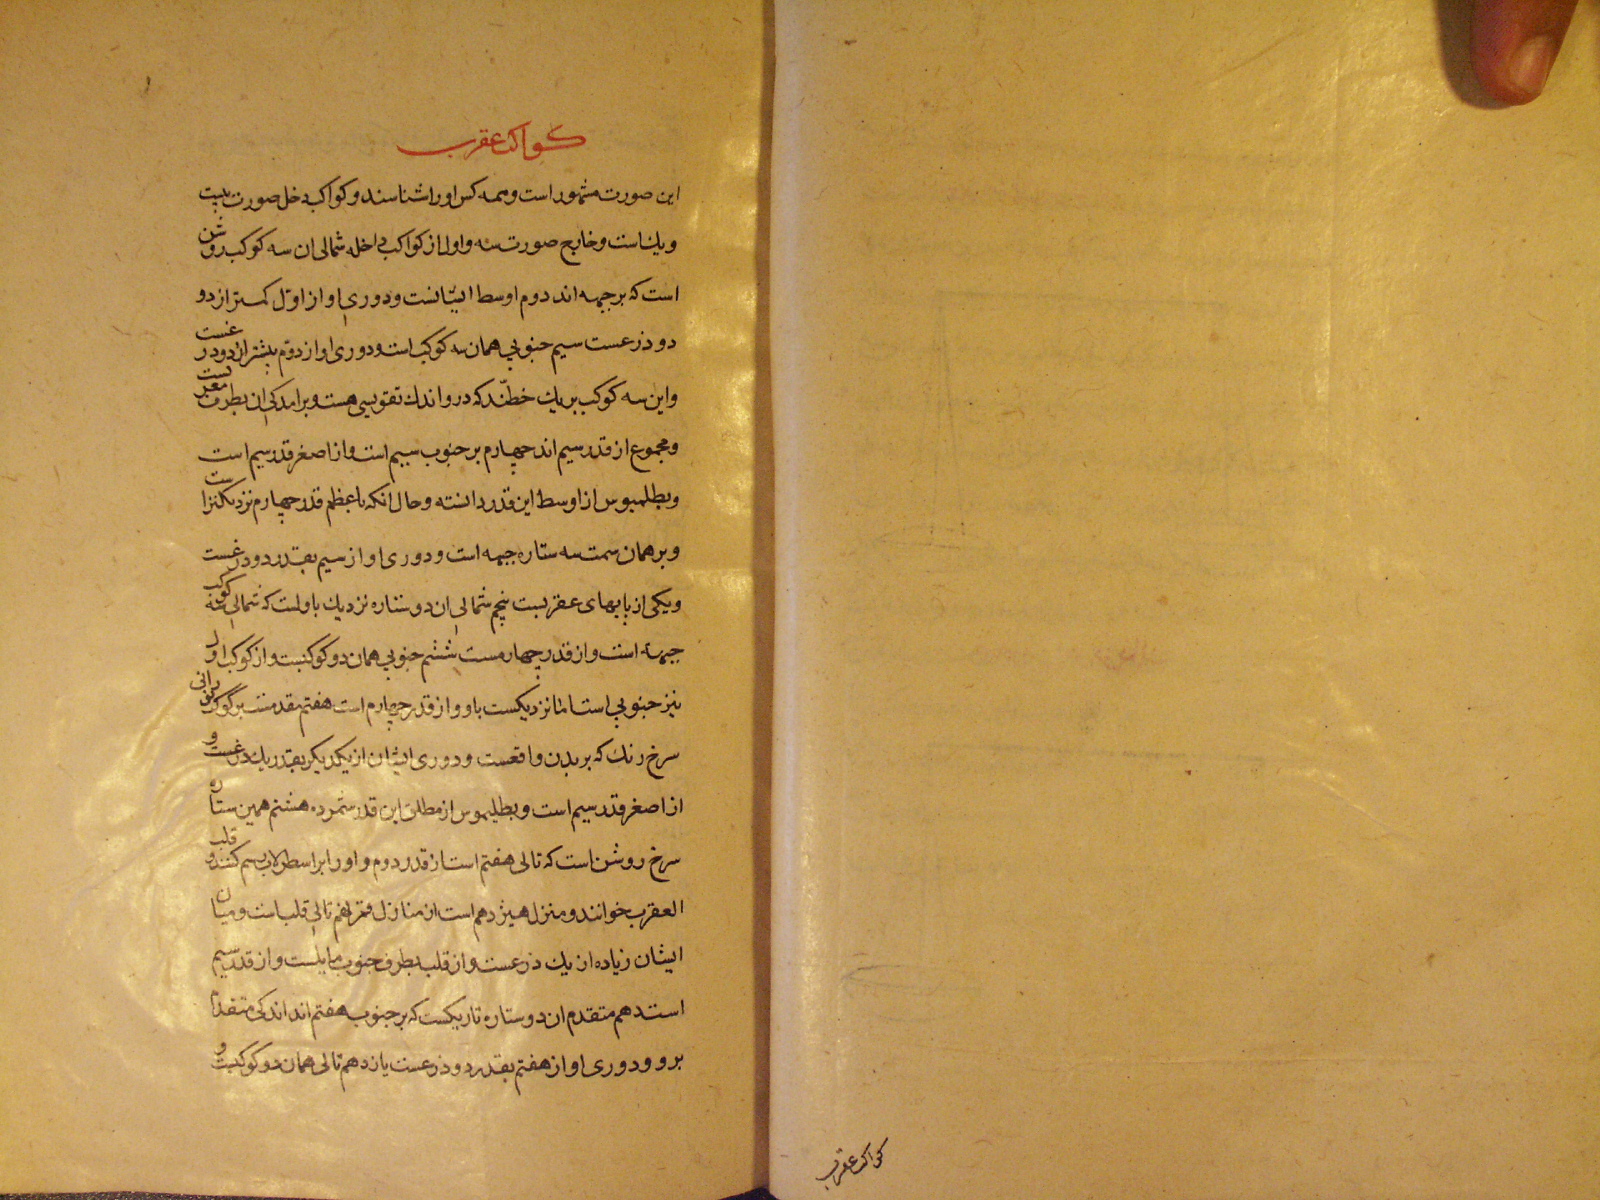 كواكب عقرب
این صورت مشهور است و همه کس او را شناسند و کواکب داخل صورت بیست
و یک است و خارج صورت سه و اول از کواکب داخله شمالی ان سه کوکب روشن
است که بر جبهه اند دوم اوسط ایشانست و دوری او از اوّل کمتر از دو
دو ذرعست سیم جنوبی همان سه کوکب است و دوری او از دوّم بیشتر از دو ذرعست
و این سه کوکب بر یک خطّند که در و اندک تقویسی هست و برامدکی ان بطرف مغربست
و مجموع از قدر سیم اند چهارم بر جنوب سیم است و از اصغر قدر سیم است
و بطلمیوس از اوسط این قدر دانسته و حال انکه باعظم قدر چهارم نزدیکتر است
و بر همان سمت سه ستاره جبهه است و دوری او از سیم بقدر دو ذرعست
و یکی از پایهای عقربست پنجم شمالی ان دو ستاره نزدیک باولست که شمالی سه کوکب
جبهه است و از قدر چهارمست ششم جنوبی همان دو کوکبست و از کوکب اول
نیز جنوبی است اما نزدیکست باو و از قدر چهارم است هفتم مقدمست بر کوکب نورانی
سرخ رنک که بر بدن واقعست و دوری ایشان از یکدیکر بقدر یک ذرعست و
از اصغر قدر سیم است و بطلیموس از مطلق این قدر شمرده هشتم همین ستاره
سرخ روشن است که تالی هفتم است از قدر دوم و او را بر اسطرلاب رسم کنند و قلب
العقرب خوانند و منزل هیژدهم است از منازل قمر نهم تالی قلب است و میان
ایشان زیاده از یک ذرعست و از قلب بطرف جنوب مایلست و از قدر سیم
است دهم متقدم ان دو ستاره تاریکست که بر جنوب هفتم اند اندکی متقدم
بر و و دوری او از هفتم بقدر دو ذرعست یازدهم تالی همان دو کوکبست و
كواكب عقرب